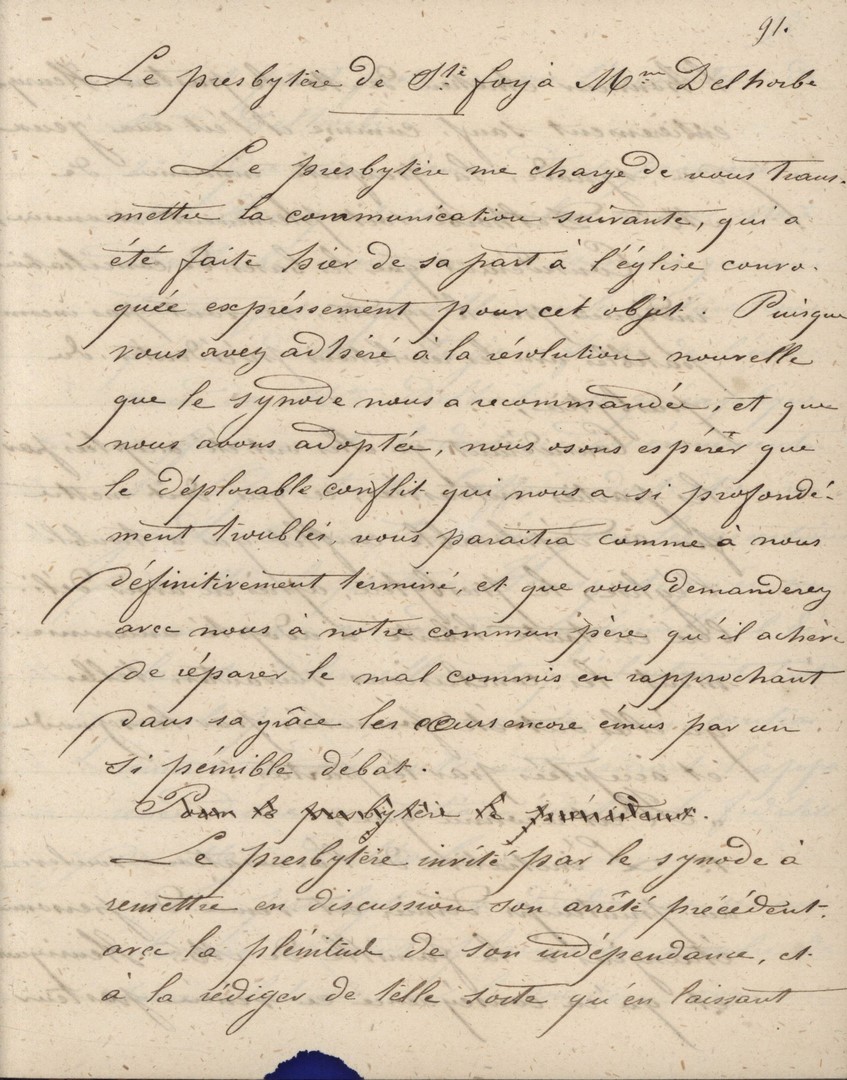 91.
Le presbytère de Ste foy à Mme Delhorbe
Le presbytère me charge de vous trans-
mettre la communication suivante, qui a
été faite hier de sa part à l'église convo-
quée expréssement pour cet objet. Puisque
vous avez adhéré à la résolution nouvelle
que le synode nous a recommandée, et que
nous avons adoptée, nous osons espérer que
le déplorable conflit qui nous a si profondé-
ment troublés, vous paraitra comme à nous
définitivement terminé, et que vous demanderez
avec nous à notre commun père qu'il achève
de réparer le mal commis en rapprochant
dans sa grâce les cœurs encore émus par un
si pénible débat.
Pour le presbytère le président.
Le presbytère invité par le synode à
remettre en discussion son arrêté précédent,
avec la plénitud de son indépendance, et
à la rédiger de telle sorte qu'en laissant